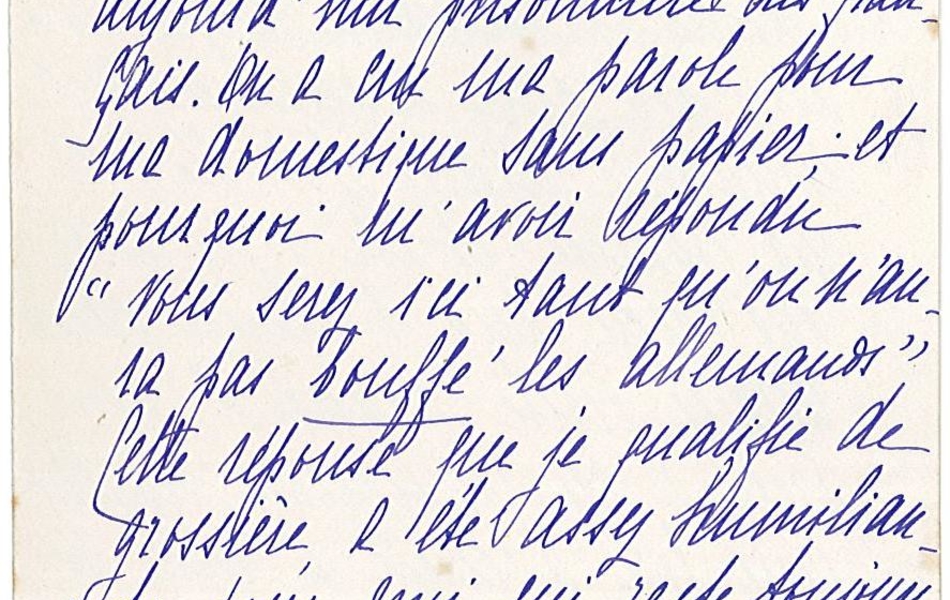 aujourd'hui prisonnière des fran-
çais. On a cru ma parole pour
ma domestique sans papier. et
pourquoi m'avoir répondu
“ Vous serez ici tant qu'on n'au-
ra pas bouffé les allemands”
Cette réponse que je qualifie de
grossière a été assez humilian-
qui reste toujours